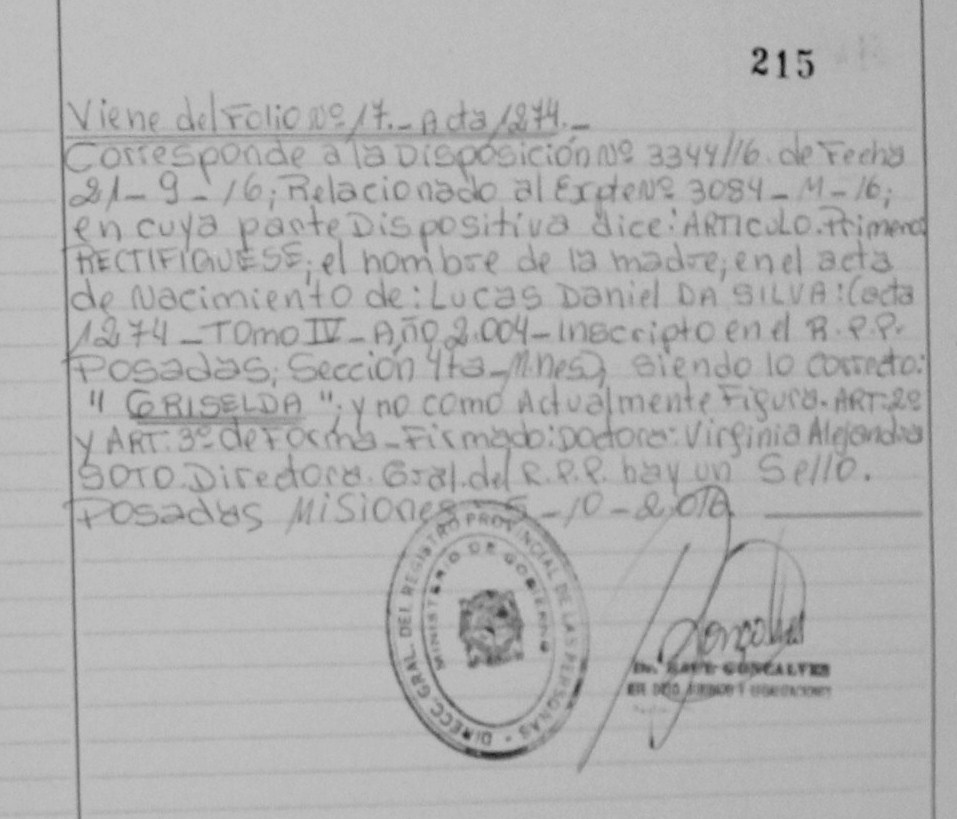 215
Viene del Folio Nº 17.- Acta 1274.-
Corresponde a la Disposición Nº 3344/16. de Fecha
21-9-16; Relacionado al Expte Nº 3084-M-16;
en cuya parte Dispositiva dice: ARTICULO. Primero
RECTIFIQUESE; el nombre de la madre; en el acta
de Nacimiento de: LUCAS Daniel DA SILVA: (acta
1274-TOMO IV-Año 2.004-Inscripto en el R.P.P.
Posadas; Sección 4ta-Mnes); siendo lo correcto:
"GRISELDA"; y no como Actualmente Figura. ART: 2º
y ART: 3º de Forma-Firmado: Doctora: Virginia Alejandra
SOTO. Directora. Gral. del R.P.P. hay un Sello.
Posadas Misiones -10-2.016
DIRECC. GRAL. DEL REGISTRO PROVINCIAL DE LAS PERSONAS
MINISTERIO DE GOBIERNO
GONCALVES